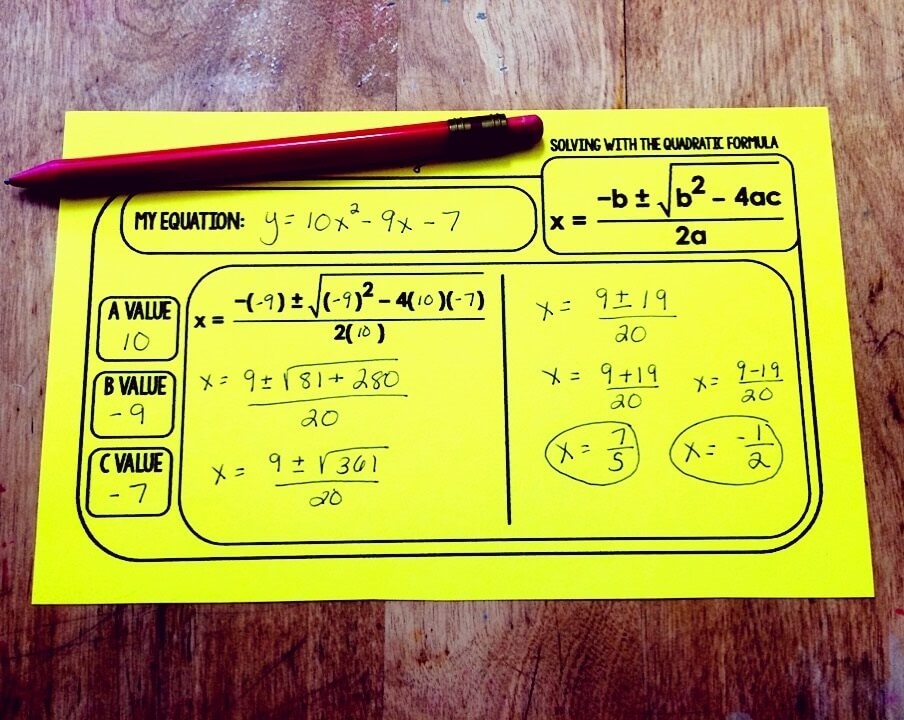 SOLVING WITH THE QUADRATIC FORMULA
MY EQUATION: y = 10x² - 9x - 7
x = (-b ± √(b² - 4ac)) / 2a
A VALUE
10
B VALUE
-9
C VALUE
-7
x = (-(-9) ± √((-9)² - 4(10)(-7))) / 2(10)
x = (9 ± √(81 + 280)) / 20
x = (9 ± √361) / 20
x = (9 ± 19) / 20
x = (9 + 19) / 20 x = (9 - 19) / 20
x = 7/5 x = -1/2